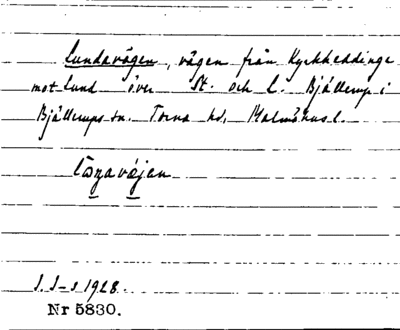 Lundavägen, vägen från Kyrkheddinge
mot Lund över St. och L. Bjällerup i
Bjällerups sn. Torna hd, Malmöhus l.
J. J-s 1928.
Nr 5830.